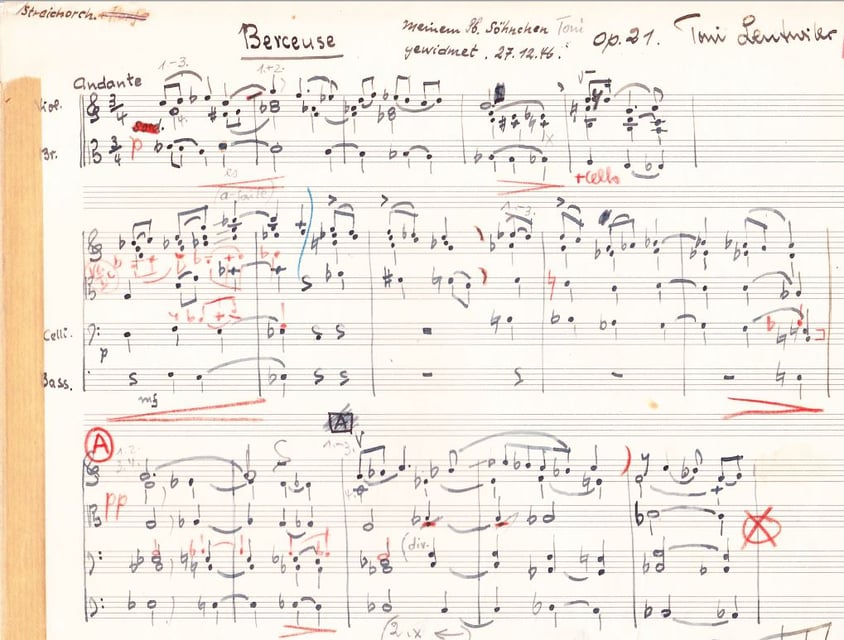 Streichorch.
Berceuse
meinem lb. Söhnchen Toni
gewidmet. 27.12.46.
Op. 21. Toni Leutwiler
Andante
1.-3. 1.+2.
Viol.
3/4
Br.
3/4
p
+Cello
1.-3.
Celli.
p
Bass.
mf
A
A
1.2.
1.-3.
pp
(div.
(2 ix ←)